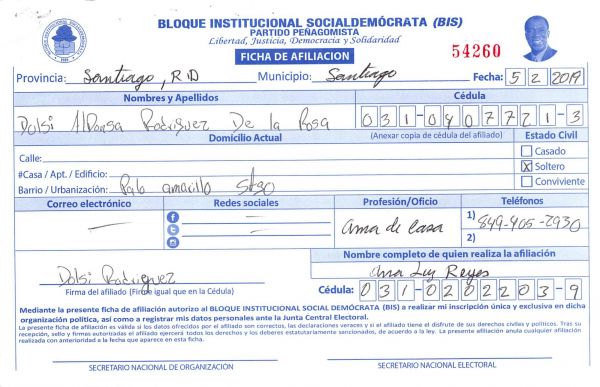 BLOQUE INSTITUCIONAL SOCIALDEMÓCRATA (BIS)
PARTIDO PEÑAGOMISTA
Libertad, Justicia, Democracia y Solidaridad
FICHA DE AFILIACION
54260
Provincia: Santiago, RD Municipio: Santiago Fecha: 5 2 2019
Nombres y Apellidos Cédula
Dolsi Aldonsa Rodriguez De la Rosa 031-0407721-3
Domicilio Actual (Anexar copia de cédula del afiliado) Estado Civil
Calle: Casado
#Casa / Apt. / Edificio: X Soltero
Barrio / Urbanización: Palo amarillo Stgo Conviviente
Correo electrónico Redes sociales Profesión/Oficio Teléfonos
Ama de Casa 1) 849-405-2930
2)
Nombre completo de quien realiza la afiliación
Dolsi Rodriguez Ana Luz Reyes
Firma del afiliado (Firme igual que en la Cédula) Cédula: 031-0202203-9
Mediante la presente ficha de afiliación autorizo al BLOQUE INSTITUCIONAL SOCIAL DEMÓCRATA (BIS) a realizar mi inscripción única y exclusiva en dicha
organización política, así como a registrar mis datos personales ante la Junta Central Electoral.
La presente ficha de afiliación es válida si los datos ofrecidos por el afiliado son correctos, las declaraciones veraces y si el afiliado tiene el disfrute de sus derechos civiles y políticos. Tras su
recepción, sello y firmas autorizadas el afiliado ejercerá todos los derechos y los deberes estatutariamente sancionados, de acuerdo a la ley. La presente afiliación anula cualquier afiliación
realizada con anterioridad a la fecha que aparece en esta ficha.
SECRETARIO NACIONAL DE ORGANIZACIÓN SECRETARIO NACIONAL ELECTORAL